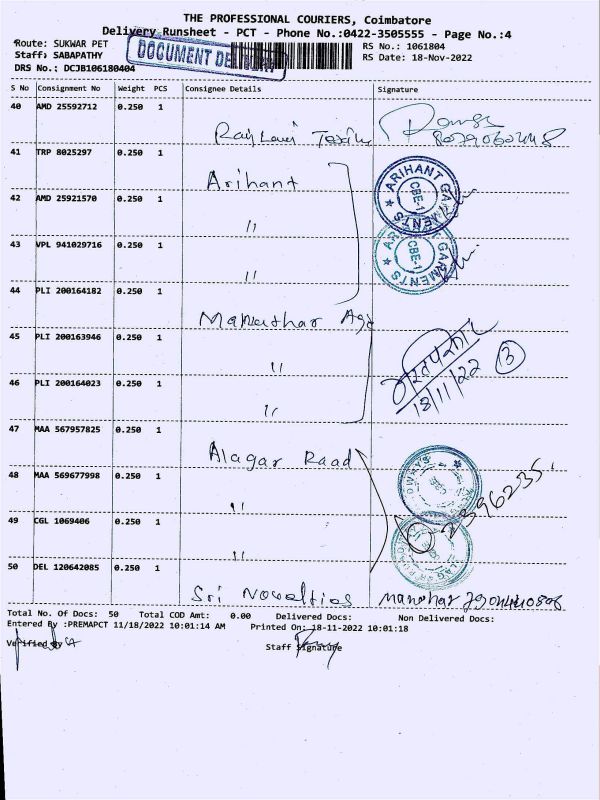 THE PROFESSIONAL COURIERS, Coimbatore
Delivery Runsheet - PCT - Phone No.:0422-3505555 - Page No.:4
Route: SUKWAR PET
DOCUMENT
RS No.: 1061804
Staff: SABAPATHY
RS Date: 18-Nov-2022
DRS No.: DCJB106180404
S No Consignment No Weight PCS Consignee Details Signature
40 AMD 25592712 0.250 1
41 TRP 8025297 0.250 1
Arihant
ARIHANT GARMENTS CBE-1
42 AMD 25921570 0.250 1
"
43 VPL 941029716 0.250 1
"
ARIHANT GARMENTS CBE-1
44 PLI 200164182 0.250 1
45 PLI 200163946 0.250 1
"
3
46 PLI 200164023 0.250 1
"
18/11/22
47 MAA 567957825 0.250 1
Alagar Raad
48 MAA 569677998 0.250 1
"
49 CGL 1069406 0.250 1
"
50 DEL 120642085 0.250 1
Sri Novaltias Manohar
Total No. Of Docs: 50 Total COD Amt: 0.00 Delivered Docs: Non Delivered Docs:
Entered By :PREMAPCT 11/18/2022 10:01:14 AM Printed On: 18-11-2022 10:01:18
Verified By
Staff Signature